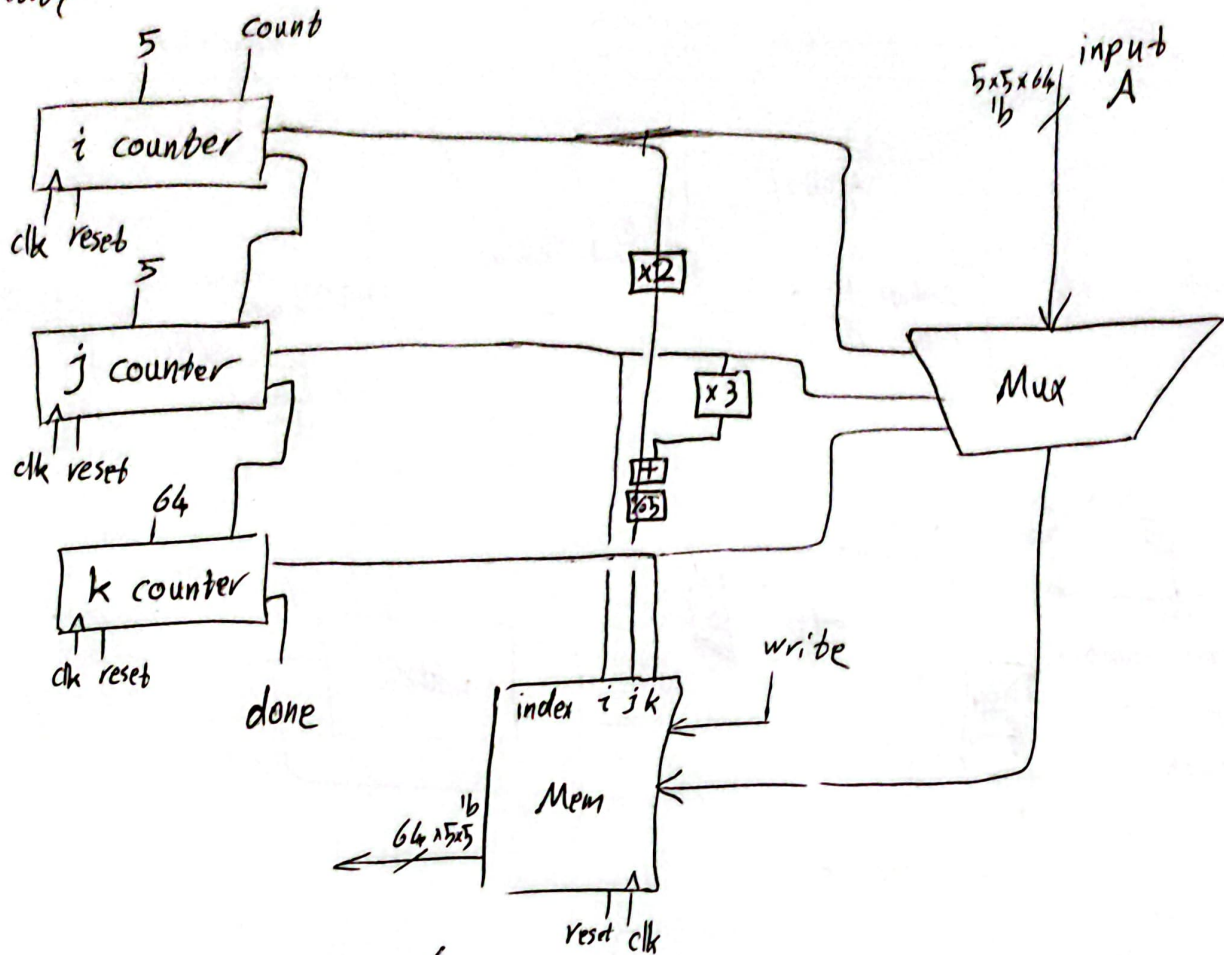 5
count
i counter
clk reset
5
j counter
clk reset
64
k counter
clk reset
done
x2
x3
+
%5
5x5x64
1b
input
A
Mux
write
index i j k
Mem
1b
64x5x5
reset clk